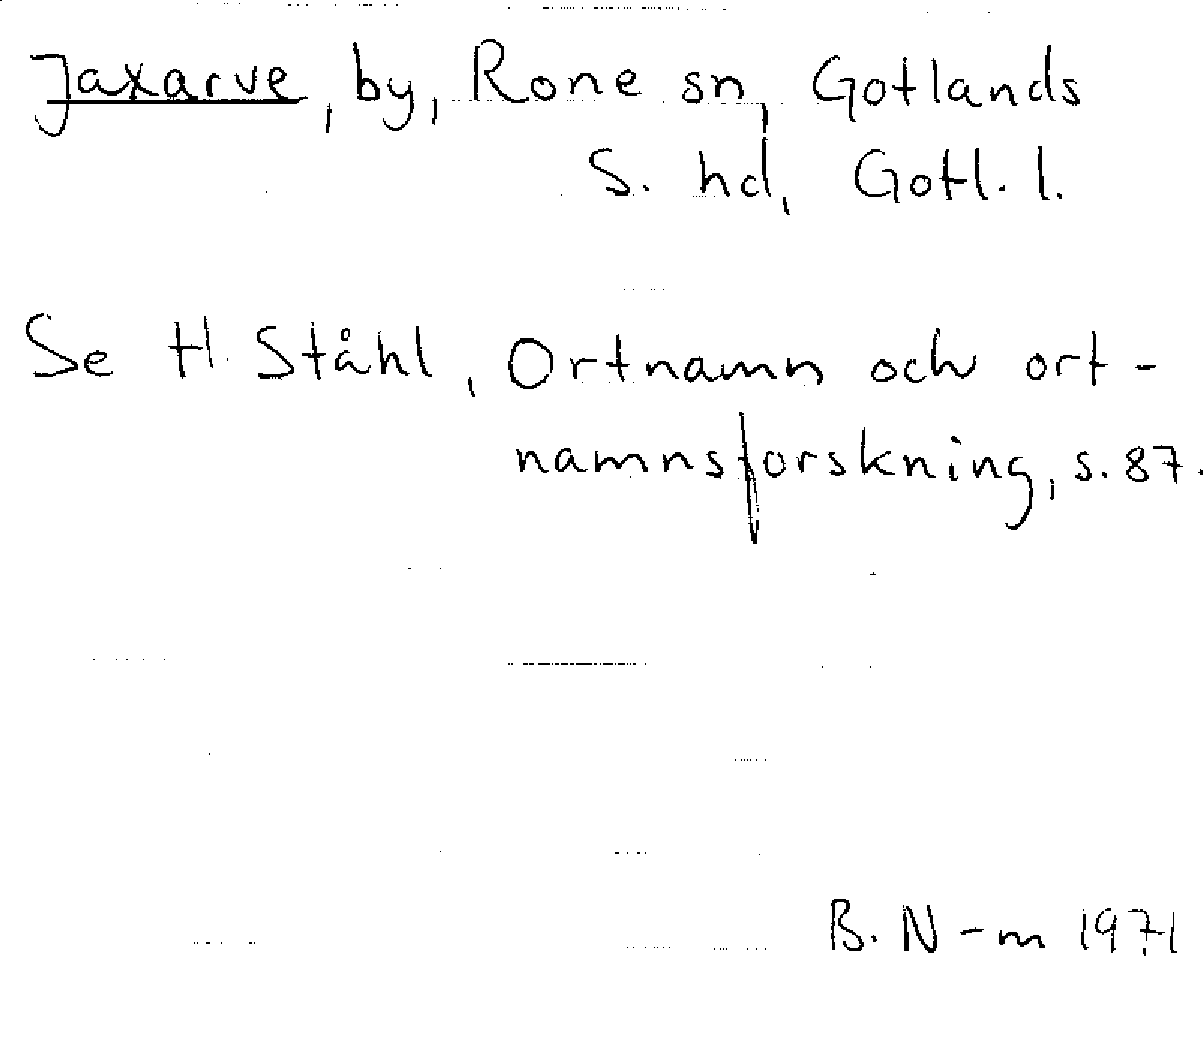 Jaxarve, by, Rone sn, Gotlands
S. hd, Gotl. l.
Se H. Ståhl, Ortnamn och ort-
namnsforskning, s. 87.
B. N-m 1971